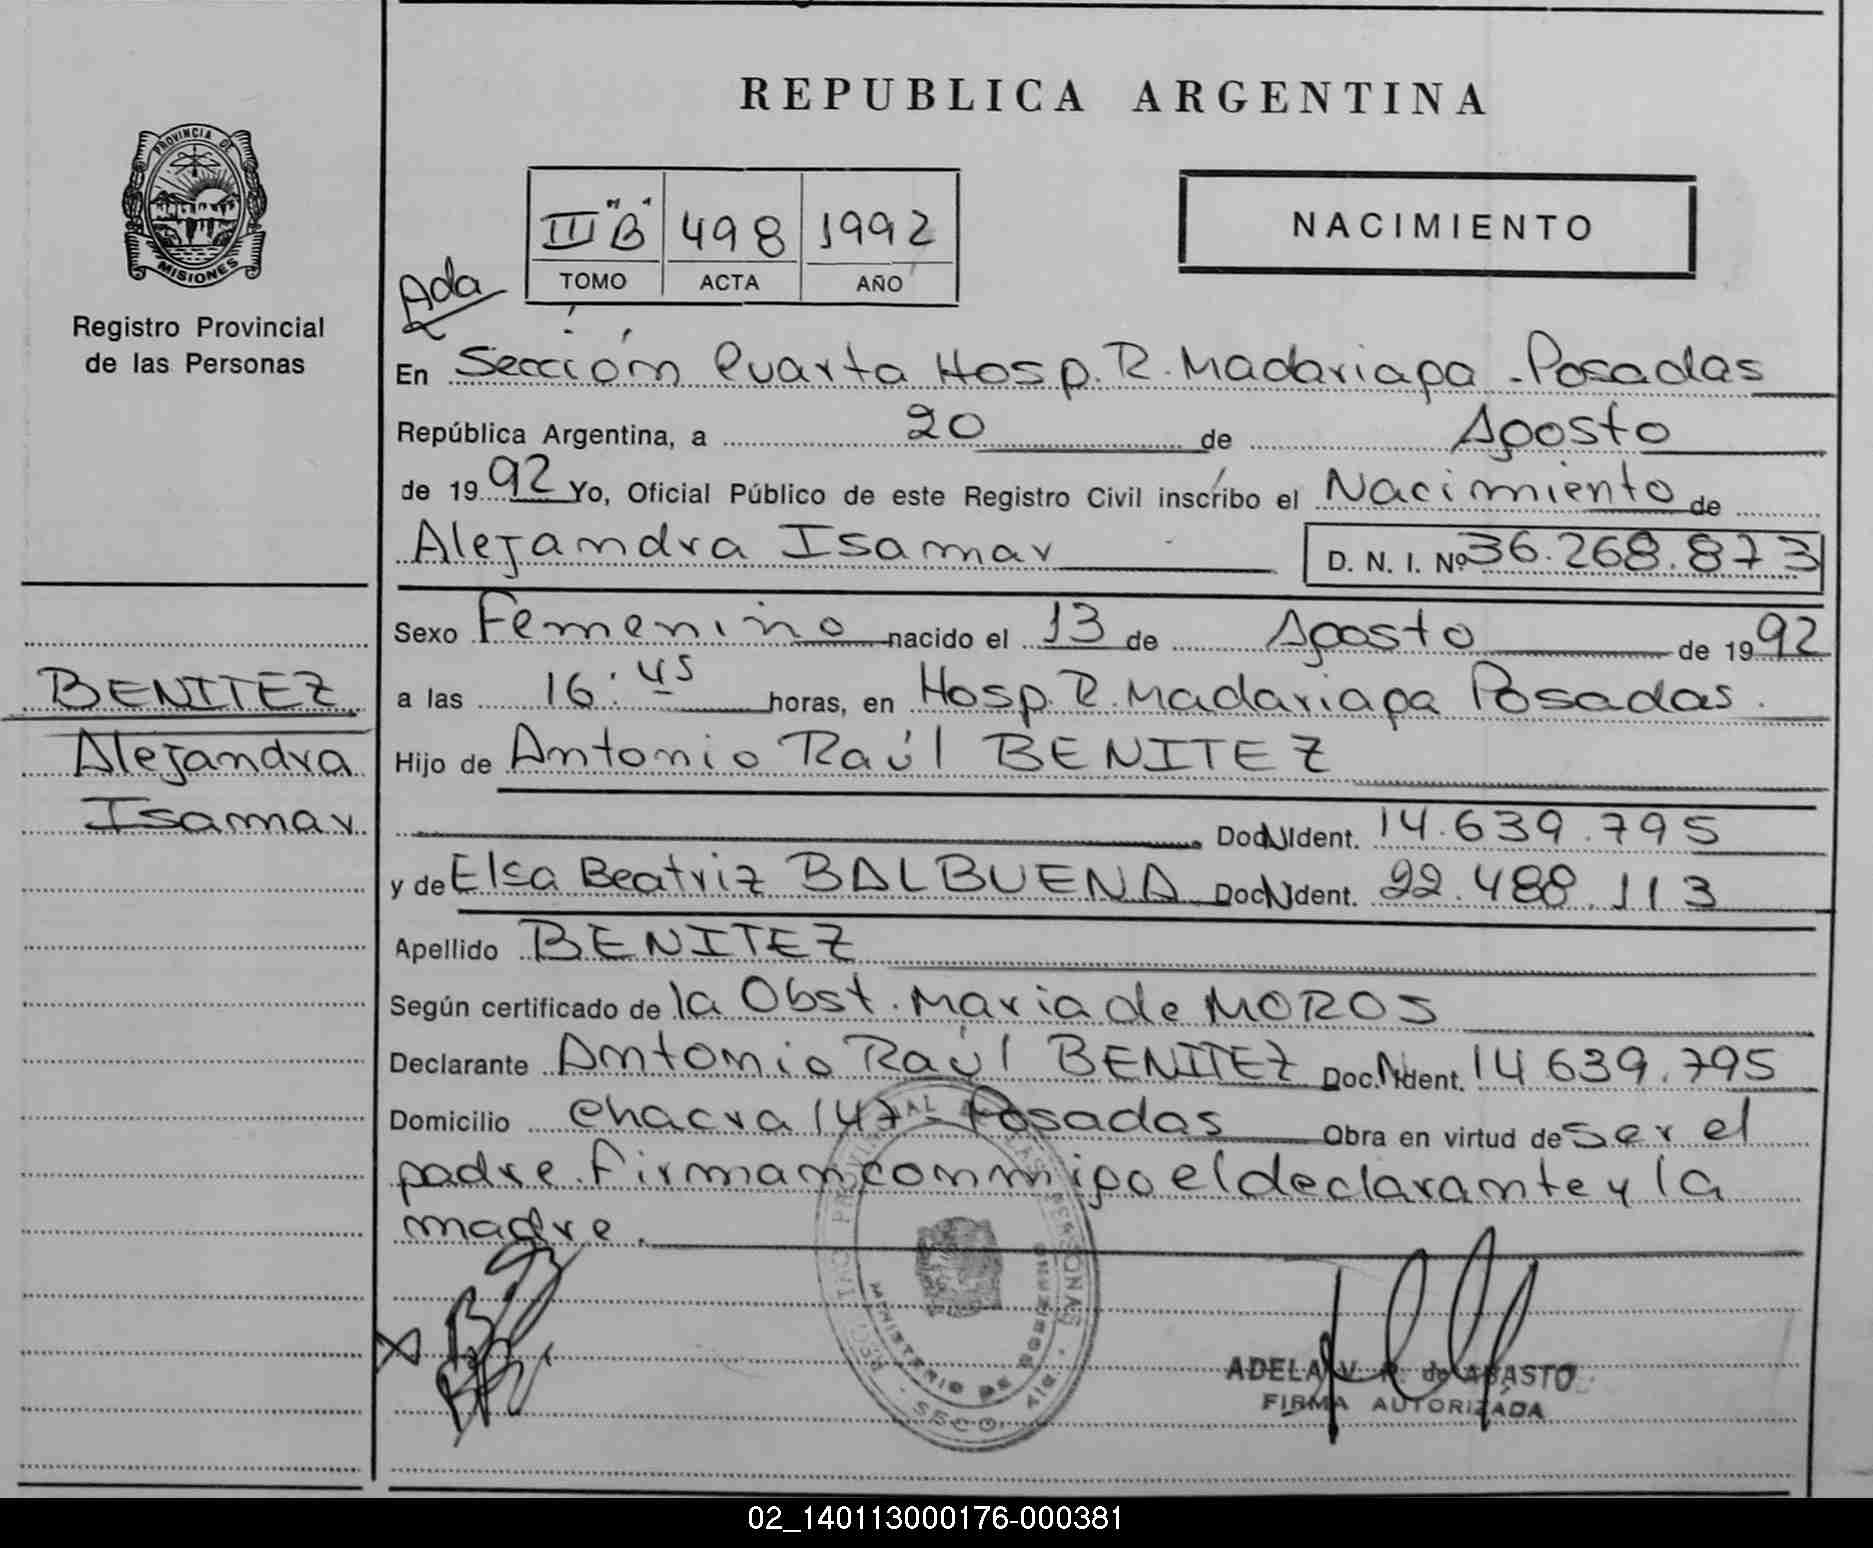 REPUBLICA ARGENTINA
PROVINCIA DE
MISIONES
Registro Provincial
de las Personas
III "B" 498 1992
TOMO ACTA AÑO
NACIMIENTO
Ada
En Sección Cuarta Hosp. R. Madariaga - Posadas
República Argentina, a 20 de Agosto
de 1992 Yo, Oficial Público de este Registro Civil inscribo el Nacimiento de
Alejandra Isamar D. N. I. Nº 36.268.873
Sexo Femenino nacido el 13 de Agosto de 1992
a las 16:45 horas, en Hosp. R. Madariaga Posadas.
Hijo de Antonio Raúl BENITEZ
Doc. Ident. 14.639.795
y de Elsa Beatriz BALBUENA Doc. Ident. 22.488.113
Apellido BENITEZ
Según certificado de la Obst. Maria de MOROS
Declarante Antonio Raúl BENITEZ Doc. Ident. 14 639.795
Domicilio Chacra 147 - Posadas Obra en virtud de Ser el
padre. Firman conmigo el declarante y la
madre.
BENITEZ
Alejandra
Isamar
MINISTERIO DE GOBIERNO
ADELA V. de ABASTO
FIRMA AUTORIZADA
02_140113000176-000381